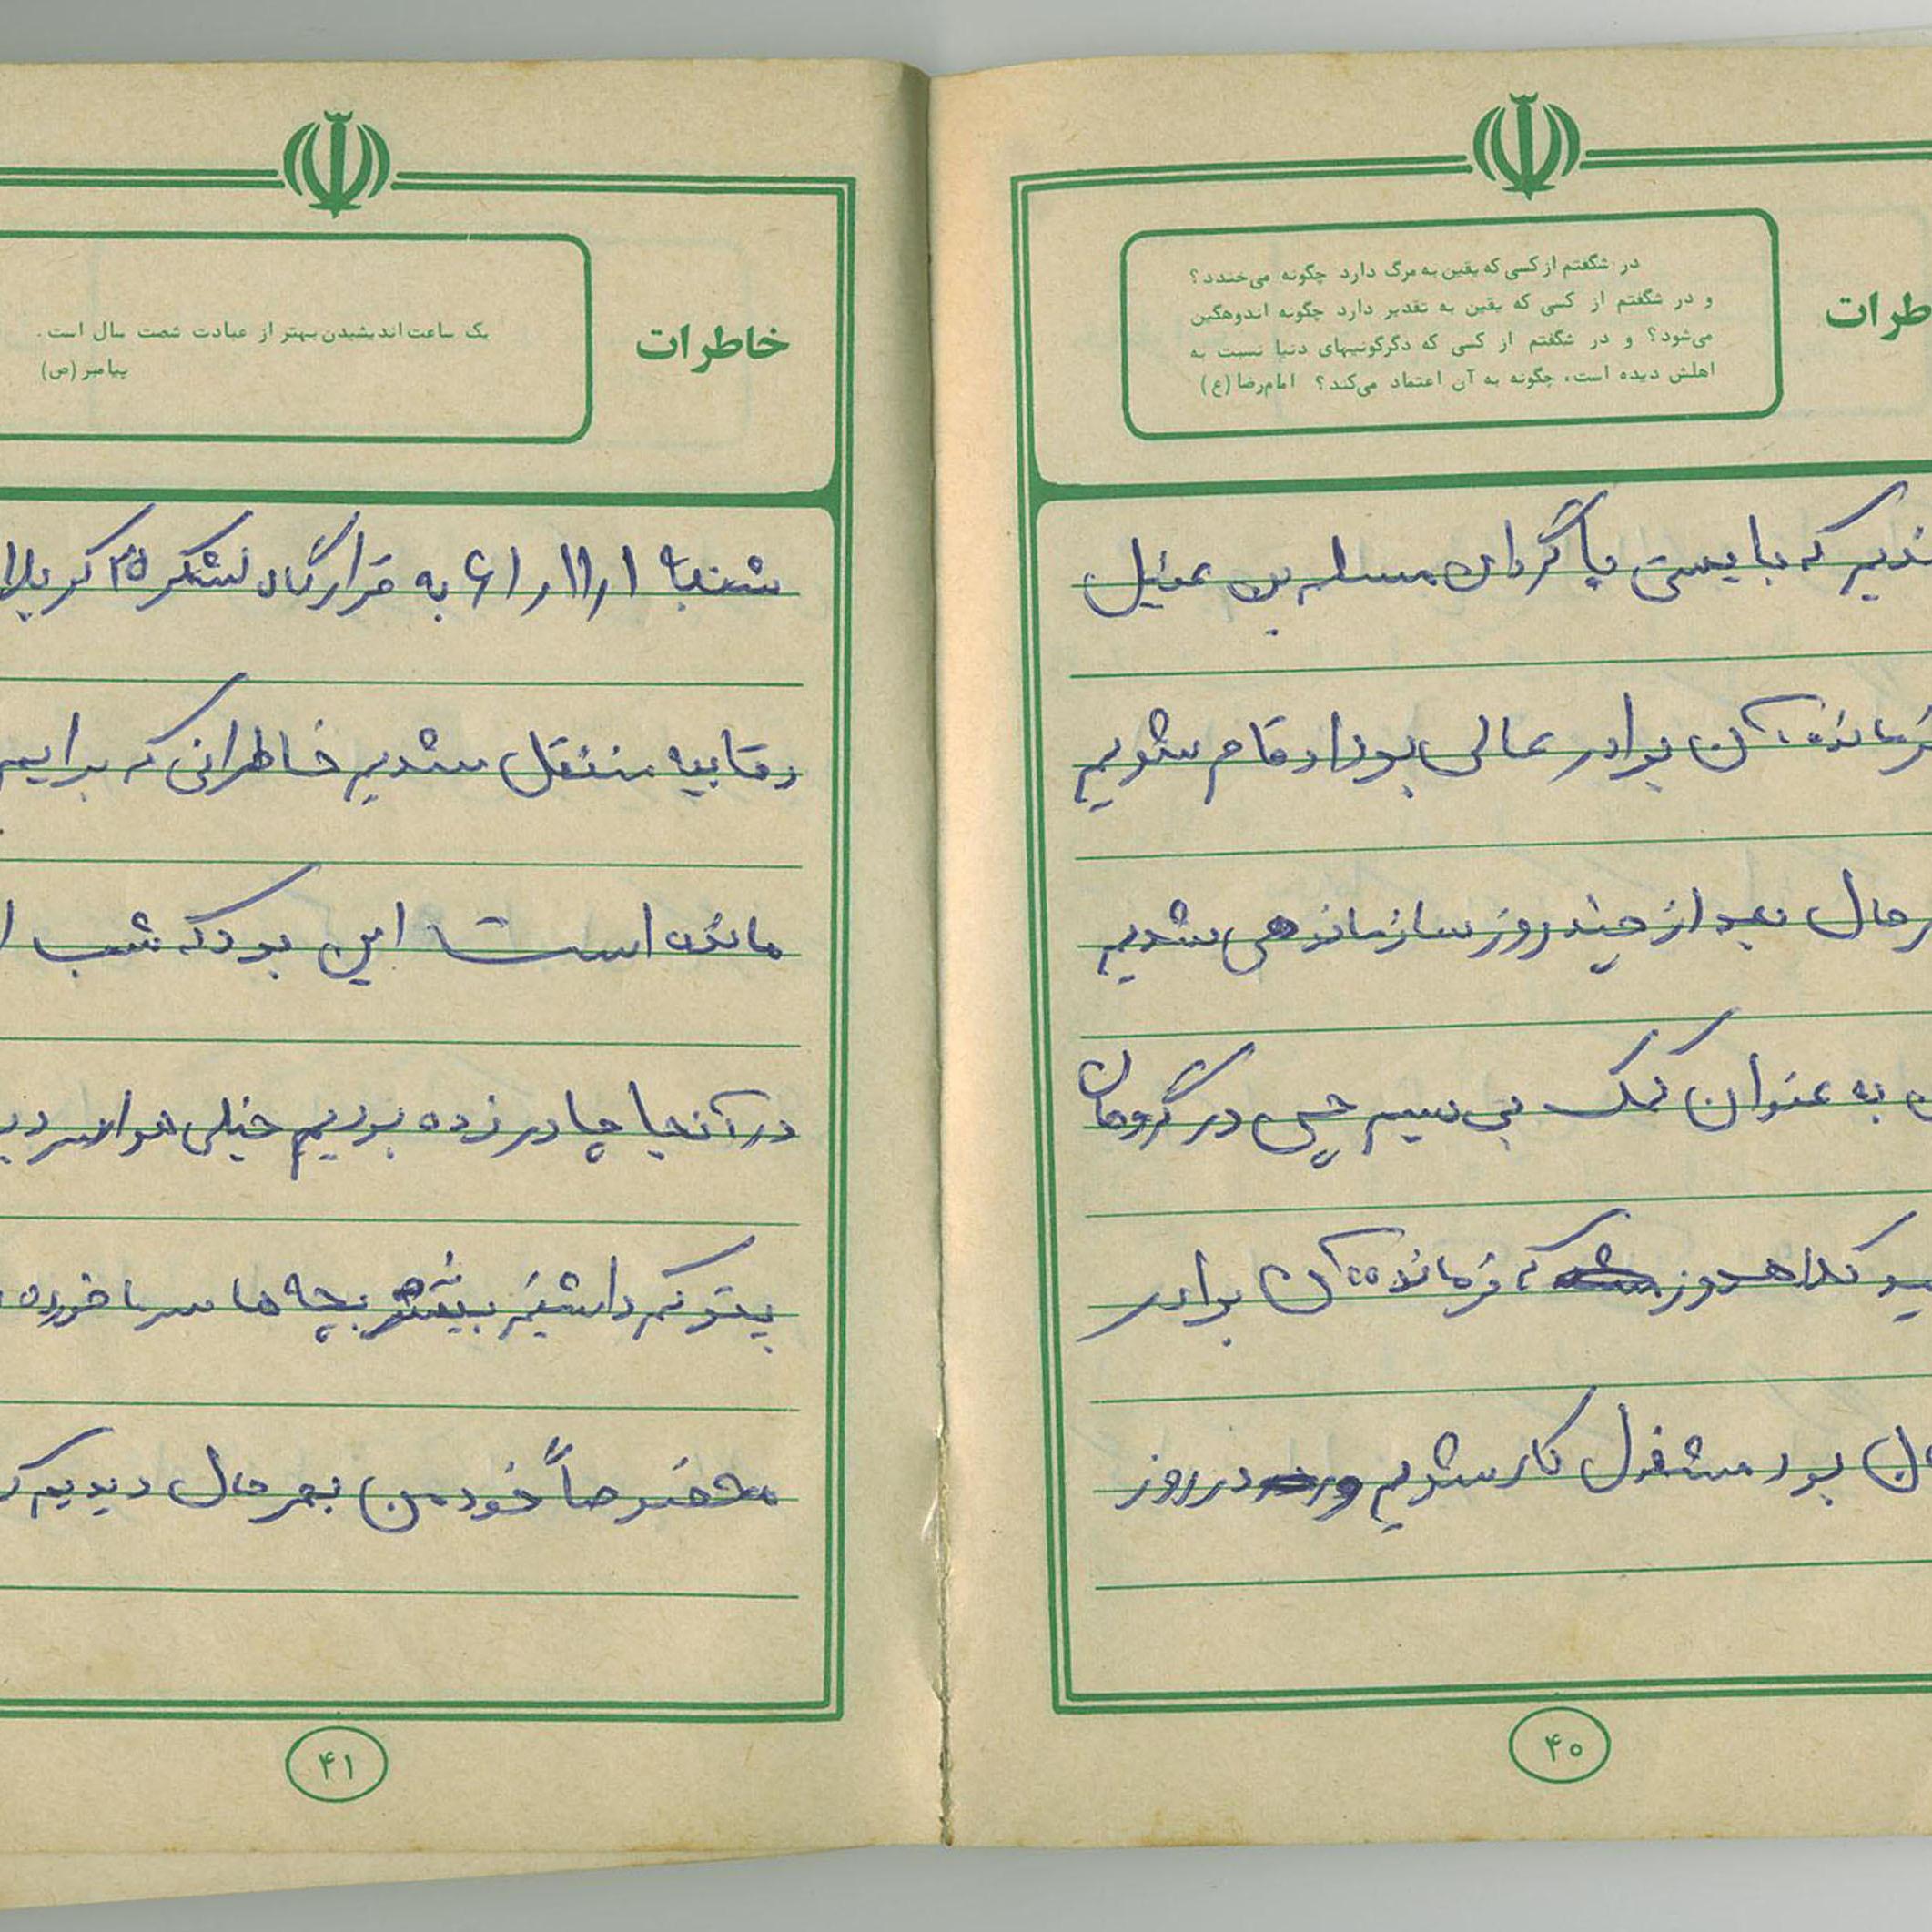 در شگفتم از کسی که یقین به مرگ دارد چگونه می‌خندد؟
و در شگفتم از کسی که یقین به تقدیر دارد چگونه اندوهگین
می‌شود؟ و در شگفتم از کسی که دگرگونیهای دنیا نسبت به
اهلش دیده است، چگونه به آن اعتماد می‌کند؟ امام رضا (ع)
طرات
که بایستی با گردان مسلم بن عقیل
فرمانده آن برادر عالی بود ادغام شویم
حال بعد از چند روز سازماندهی شدیم
به عنوان کمک بی سیم چی در گروهان
کلاهدوز که فرمانده آن برادر
بود مشغول کار شدیم در روز
۴۰
خاطرات
یک ساعت اندیشیدن بهتر از عبادت شصت سال است.
پیامبر (ص)
شنبه ۶۱/۱۱/۱ به قرارگاه لشکر ۲۵ کربلا
رقابیه منتقل شدیم خاطراتی که برایم
مانده است این بود که شب
در آنجا چادر زده بودیم خیلی هوا سرد
پتو کم داشتیم بیشتر بچه ها سرما خورده
مخصوصاً خود من بهر حال دیدیم
۴۱